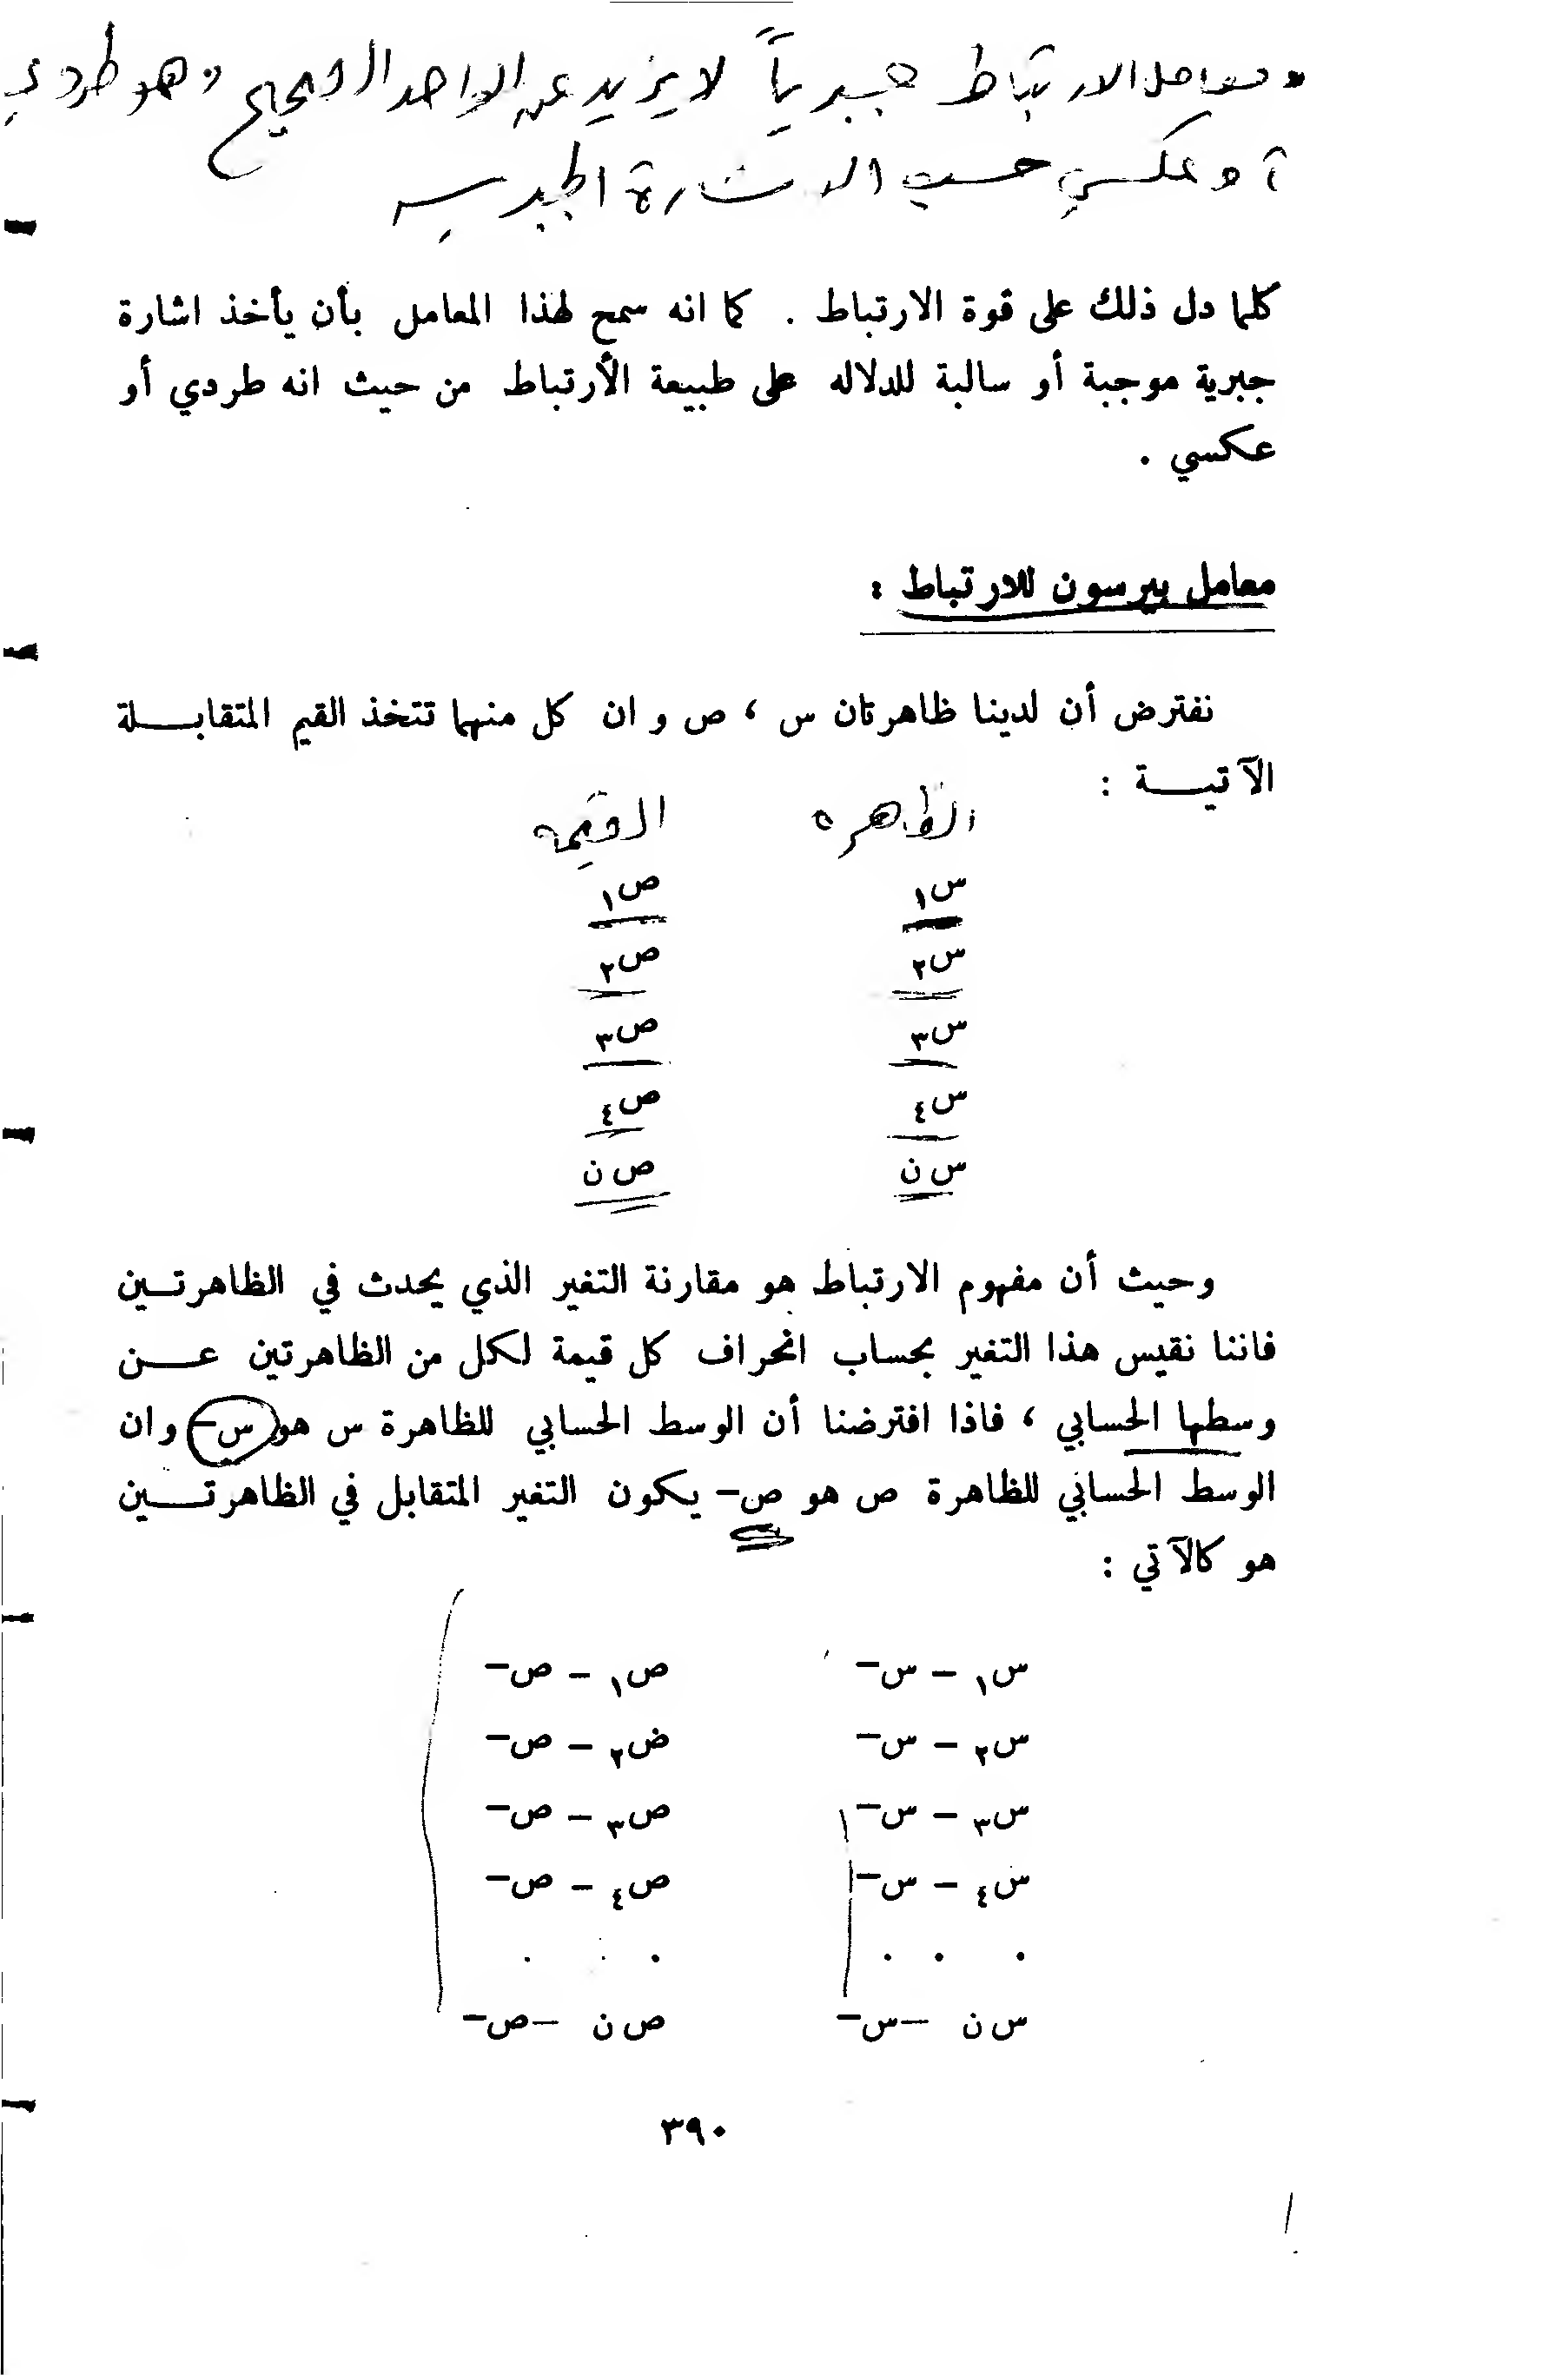 معامل الارتباط جبرياً لا يزيد عن الواحد الصحيح وهو طردي
أو عكسي حسب الاشارة الجبريه
كلما دل ذلك على قوة الارتباط . كما انه سمح لهذا المعامل بأن يأخذ اشارة
جبرية موجبة أو سالبة للدلاله على طبيعة الأرتباط من حيث انه طردي أو
عكسي .
معامل بيرسون للارتباط :
نفترض أن لدينا ظاهرتان س ، ص وان كل منهما تتخذ القيم المتقابلة
الآتية :
الظاهره القيمه
س١ ص١
س٢ ص٢
س٣ ص٣
س٤ ص٤
س ن ص ن
وحيث أن مفهوم الارتباط هو مقارنة التغير الذي يحدث في الظاهرتين
فاننا نقيس هذا التغير بحساب انحراف كل قيمة لكل من الظاهرتين عن
وسطها الحسابي ، فاذا افترضنا أن الوسط الحسابي للظاهرة س هو س– وان
الوسط الحسابي للظاهرة ص هو ص– يكون التغير المتقابل في الظاهرتين
هو كالآتي :
س١ – س– ص١ – ص–
س٢ – س– ض٢ – ص–
س٣ – س– ص٣ – ص–
س٤ – س– ص٤ – ص–
. . . . . .
س ن – س– ص ن – ص–
٣٩٠